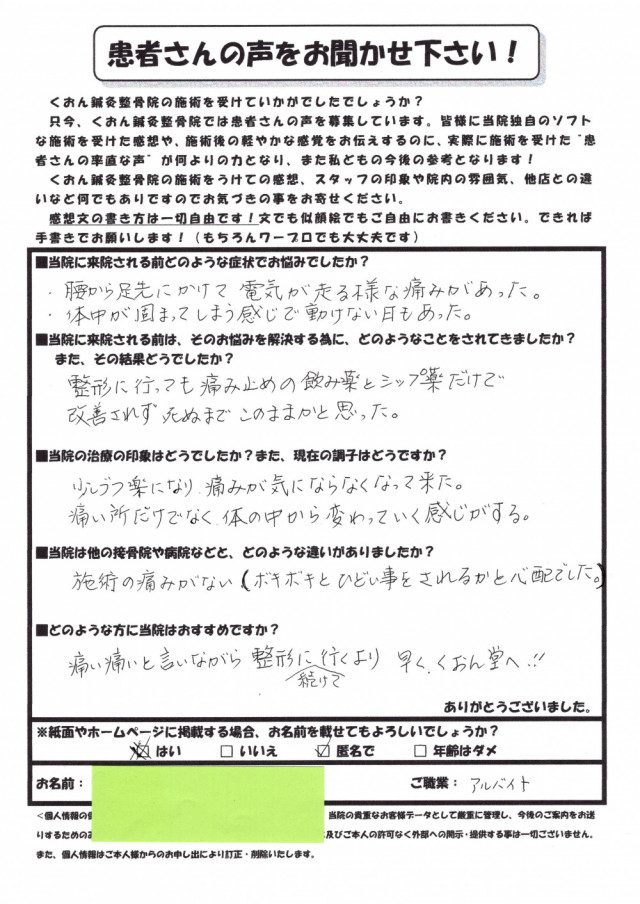 患者さんの声をお聞かせ下さい！
くおん鍼灸整骨院の施術を受けていかがでしたでしょうか？
只今、くおん鍼灸整骨院では患者さんの声を募集しています。皆様に当院独自のソフト
な施術を受けた感想や、施術後の軽やかな感覚をお伝えするのに、実際に施術を受けた“患
者さんの率直な声”が何よりの力となり、また私どもの今後の参考となります！
くおん鍼灸整骨院の施術をうけての感想、スタッフの印象や院内の雰囲気、他店との違
いなど何でもありですのでお気づきの事をお寄せください。
感想文の書き方は一切自由です！文でも似顔絵でもご自由にお書きください。できれば
手書きでお願いします！（もちろんワープロでも大丈夫です）
■当院に来院される前どのような症状でお悩みでしたか？
・腰から足先にかけて電気が走る様な痛みがあった。
・体中が固まってしまう感じで動けない日もあった。
■当院に来院される前は、そのお悩みを解決する為に、どのようなことをされてきましたか？
また、その結果どうでしたか？
整形に行っても痛み止めの飲み薬とシップ薬だけで
改善されず死ぬまでこのままかと思った。
■当院の治療の印象はどうでしたか？また、現在の調子はどうですか？
少しづつ楽になり、痛みが気にならなくなって来た。
痛い所だけでなく、体の中から変わっていく感じがする。
■当院は他の接骨院や病院などと、どのような違いがありましたか？
施術の痛みがない(ボキボキとひどい事をされるかと心配でした。)
■どのような方に当院はおすすめですか？
痛い痛いと言いながら整形に続けて行くより 早く、くおん堂へ!!
ありがとうございました。
※紙面やホームページに掲載する場合、お名前を載せてもよろしいでしょうか？
☒はい □いいえ ☑匿名で □年齢はダメ
お名前： ご職業：アルバイト
＜個人情報の 当院の貴重なお客様データとして厳重に管理し、今後のご案内をお送
りするためのお 及びご本人の許可なく外部への開示・提供する事は一切ございません。
また、個人情報はご本人様からのお申し出により訂正・削除いたします。